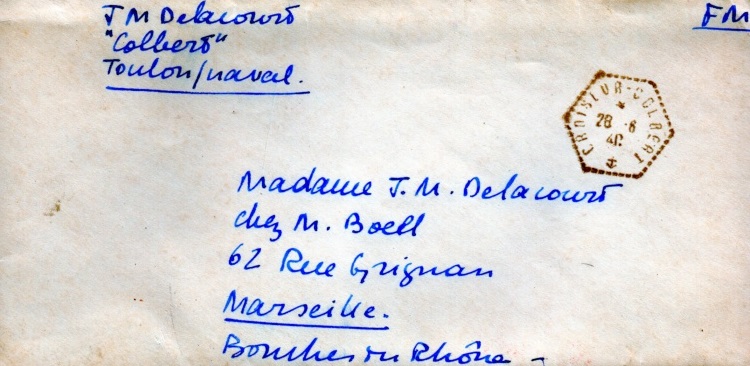 J M Delacourt
"Colbert"
Toulon/naval.
FM
CROISEUR-COLBERT
28 -6
40
Madame J. M. Delacourt
chez M. Boell
62 Rue Grignan
Marseille.
Bouches du Rhône -